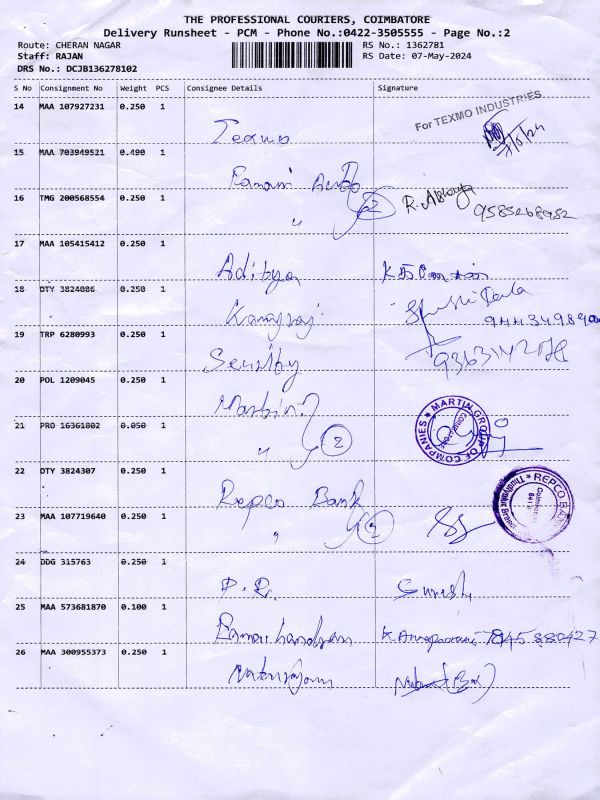 THE PROFESSIONAL COURIERS, COIMBATORE
Delivery Runsheet - PCM - Phone No.:0422-3505555 - Page No.:2
Route: CHERAN NAGAR
RS No.: 1362781
Staff: RAJAN
RS Date: 07-May-2024
DRS No.: DCJB136278102
S No Consignment No Weight PCS Consignee Details Signature
14 MAA 107927231 0.250 1
For TEXMO INDUSTRIES
Texmo
7/5/24
15 MAA 703949521 0.490 1
Ramani Auto
16 TMG 200568554 0.250 1
2
9585268982
"
17 MAA 105415412 0.250 1
Aditya
18 DTY 3824086 0.250 1
Kanagraj
19 TRP 6280993 0.250 1
Security
20 POL 1209045 0.250 1
Martin
MARTIN GROUP OF COMPANIES
COIMBATORE
21 PRO 16361802 0.050 1
" 2
22 DTY 3824307 0.250 1
Repco Bank
REPCO BANK
23 MAA 107719640 0.250 1
" 2
24 DDG 315763 0.250 1
P. R. Suresh
25 MAA 573681870 0.100 1
Ramachandran
26 MAA 300955373 0.250 1
Natarajan